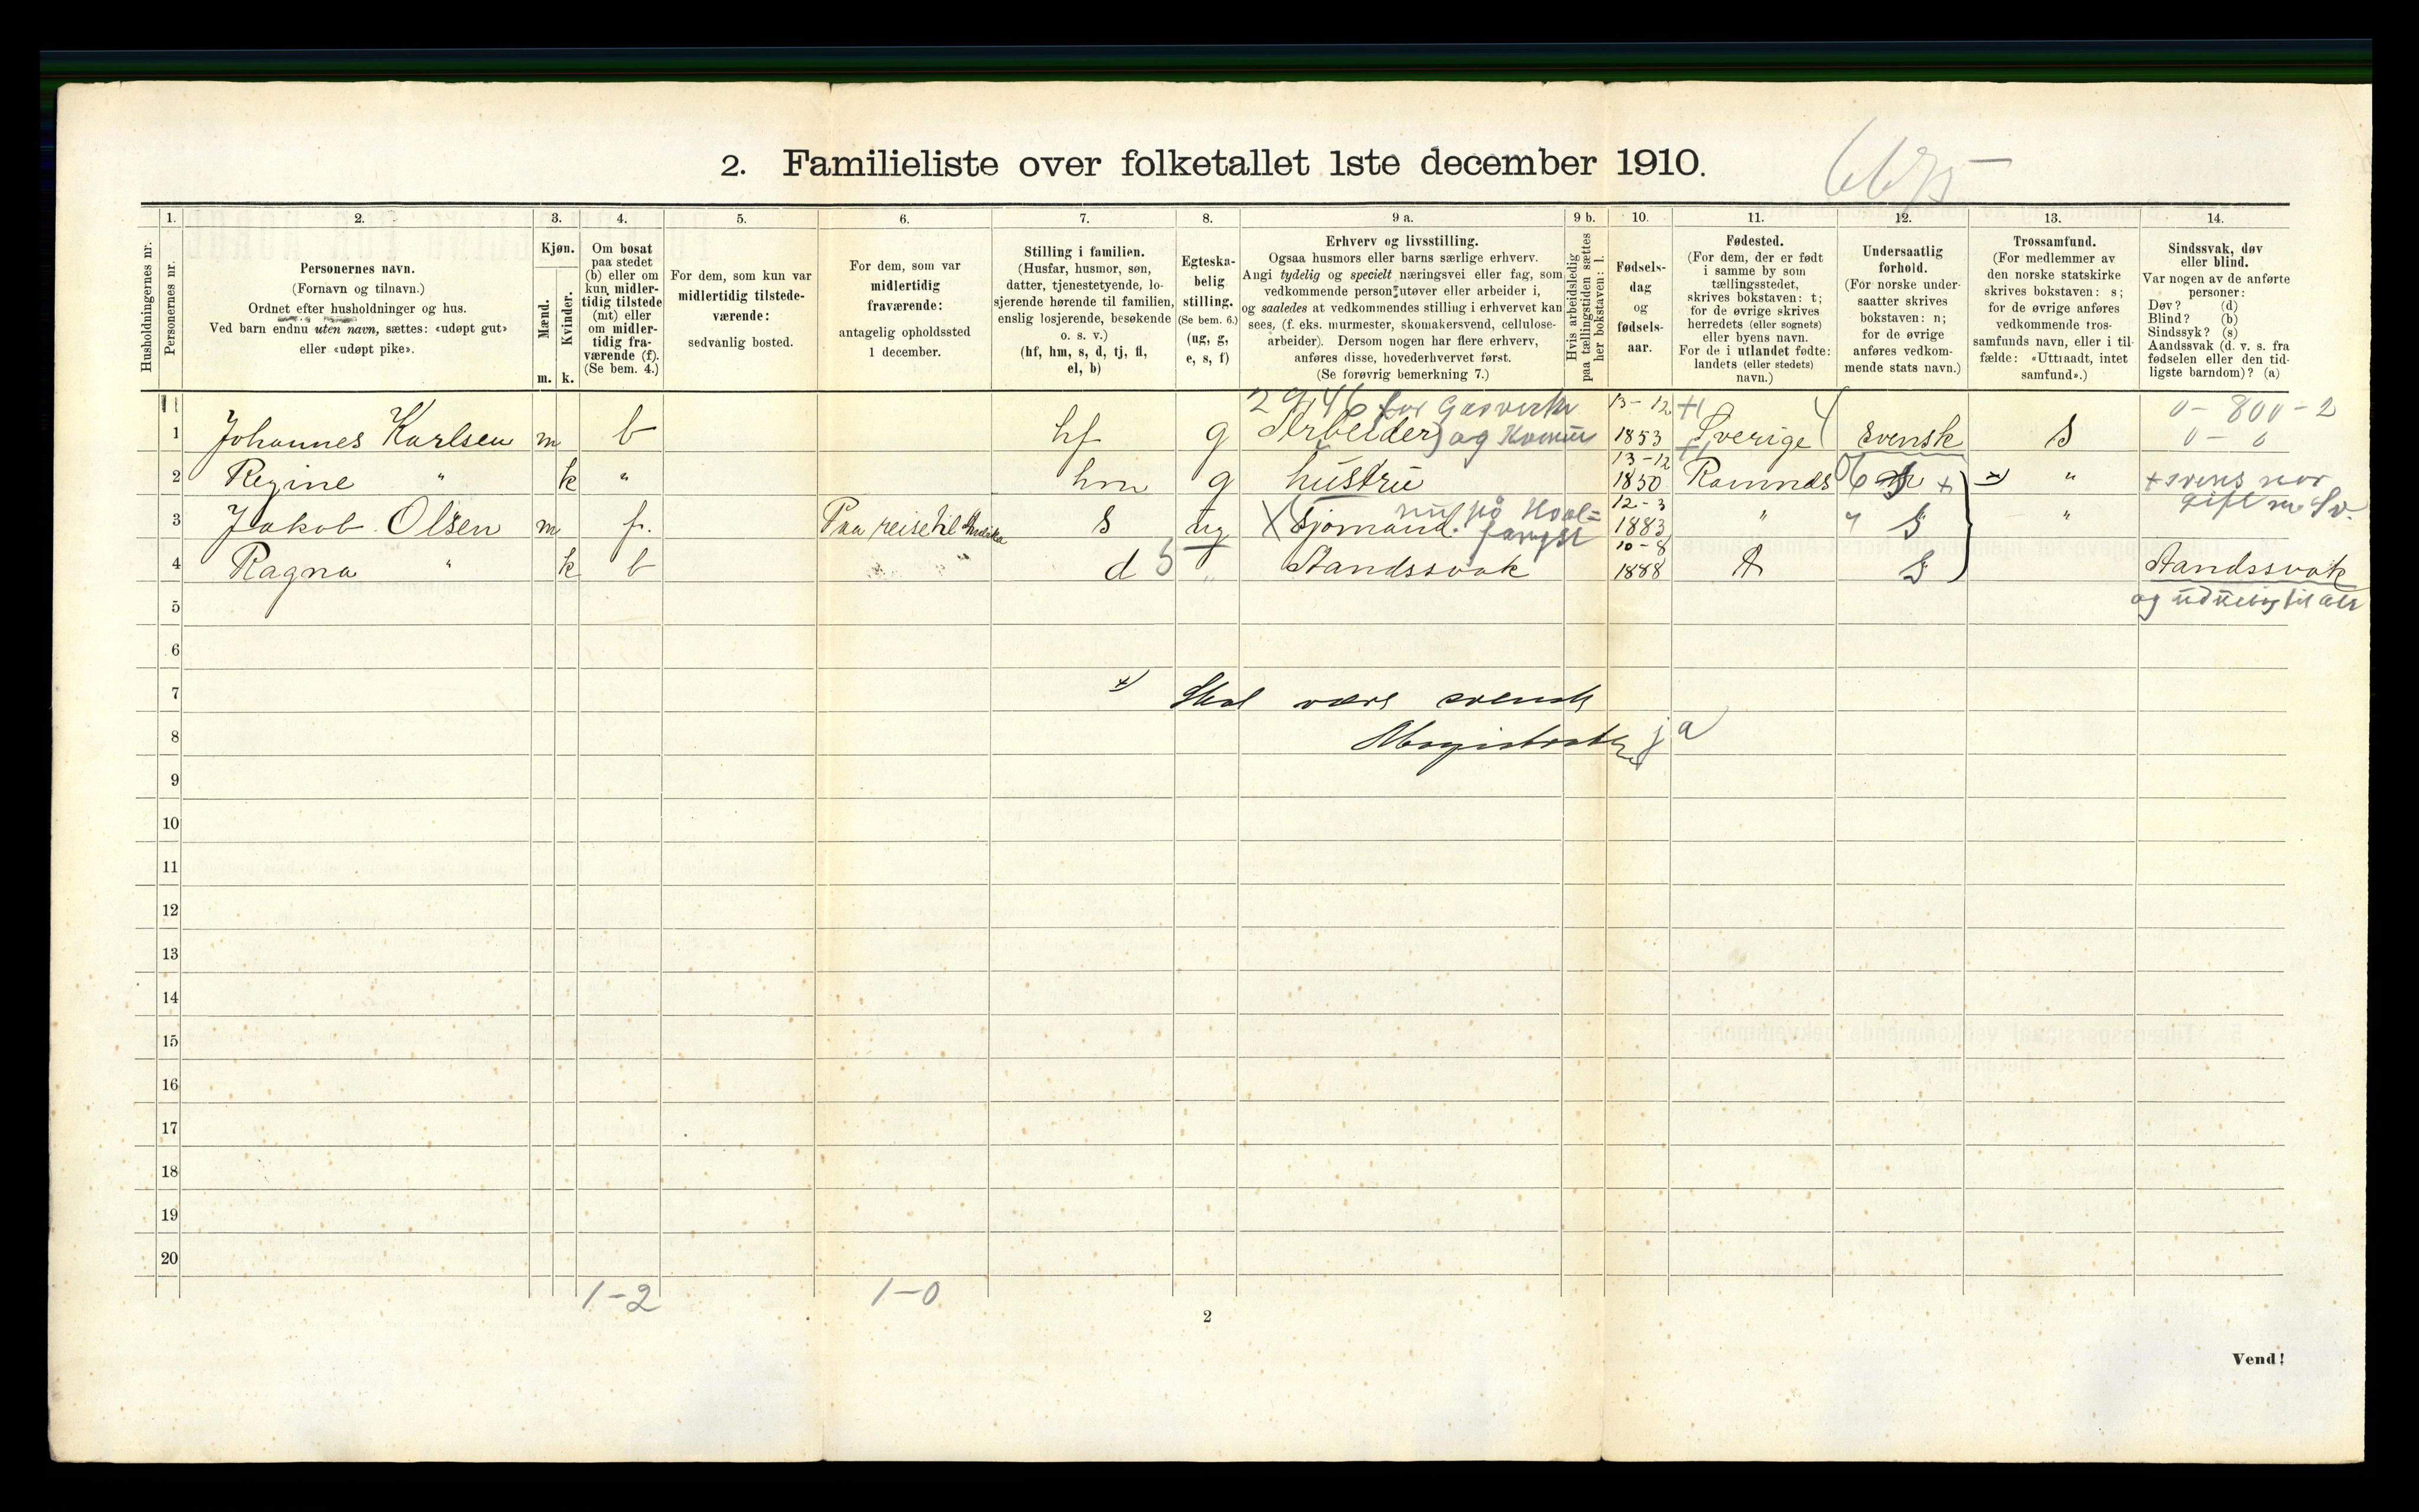 2. Familieliste over folketallet 1ste december 1910.
Husholdningernes nr.
1.
Personernes nr.
2.
Personernes navn.
(Fornavn og tilnavn.)
Ordnet efter husholdninger og hus.
Ved barn endnu uten navn, sættes: «udøpt gut»
eller «udøpt pike».
3.
Kjøn.
Mænd.
Kvinder.
m. k.
4.
Om bosat
paa stedet
(b) eller om
kun midler-
tidig tilstede
(mt) eller
om midler-
tidig fra-
værende (f).
(Se bem. 4.)
5.
For dem, som kun var
midlertidig tilstede-
værende:
sedvanlig bosted.
6.
For dem, som var
midlertidig
fraværende:
antagelig opholdssted
1 december.
7.
Stilling i familien.
(Husfar, husmor, søn,
datter, tjenestetyende, lo-
sjerende hørende til familien,
enslig losjerende, besøkende
o. s. v.)
(hf, hm, s, d, tj, fl,
el, b)
8.
Egteska-
belig
stilling.
(Se bem. 6.)
(ug, g,
e, s, f)
9 a.
Erhverv og livsstilling.
Ogsaa husmors eller barns særlige erhverv.
Angi tydelig og specielt næringsvei eller fag, som
vedkommende person utøver eller arbeider i,
og saaledes at vedkommendes stilling i erhvervet kan
sees, (f. eks. murmester, skomakersvend, cellulose-
arbeider). Dersom nogen har flere erhverv,
anføres disse, hovederhvervet først.
(Se forøvrig bemerkning 7.)
9 b.
Hvis arbeidsledig
paa tællingstiden sættes
her bokstaven: l.
10.
Fødsels-
dag
og
fødsels-
aar.
11.
Fødested.
(For dem, der er født
i samme by som
tællingsstedet,
skrives bokstaven: t;
for de øvrige skrives
herredets (eller sognets)
eller byens navn.
For de i utlandet fødte:
landets (eller stedets)
navn.)
12.
Undersaatlig
forhold.
(For norske under-
saatter skrives
bokstaven: n;
for de øvrige
anføres vedkom-
mende stats navn.)
13.
Trossamfund.
(For medlemmer av
den norske statskirke
skrives bokstaven: s;
for de øvrige anføres
vedkommende tros-
samfunds navn, eller i til-
fælde: «Uttraadt, intet
samfund».)
14.
Sindssvak, døv
eller blind.
Var nogen av de anførte
personer:
Døv? (d)
Blind? (b)
Sindssyk? (s)
Aandssvak (d. v. s. fra
fødselen eller den tid-
ligste barndom)? (a)
2946 for Gasverk 13-12 0-800-2
1 Johannes Karlsen m b hf g Arbeider og Komm 1853 Sverige svensk s 0-0
13-12
2 Regine " k " hm g hustru 1850 Ramnes " + svensk
12-3 gift m. Sv.
3 Jakob Olsen m f. Paa reise til s ug Sjømand. nu på Hval= 1883 " "
fangst 10-8
4 Ragna " k b d " Aandssvak 1888 Aandssvak
5 og til
6
7 x) Skal være svensk
8 Magistraten ja
9
10
11
12
13
14
15
16
17
18
19
20
1-2 1-0
2
Vend!